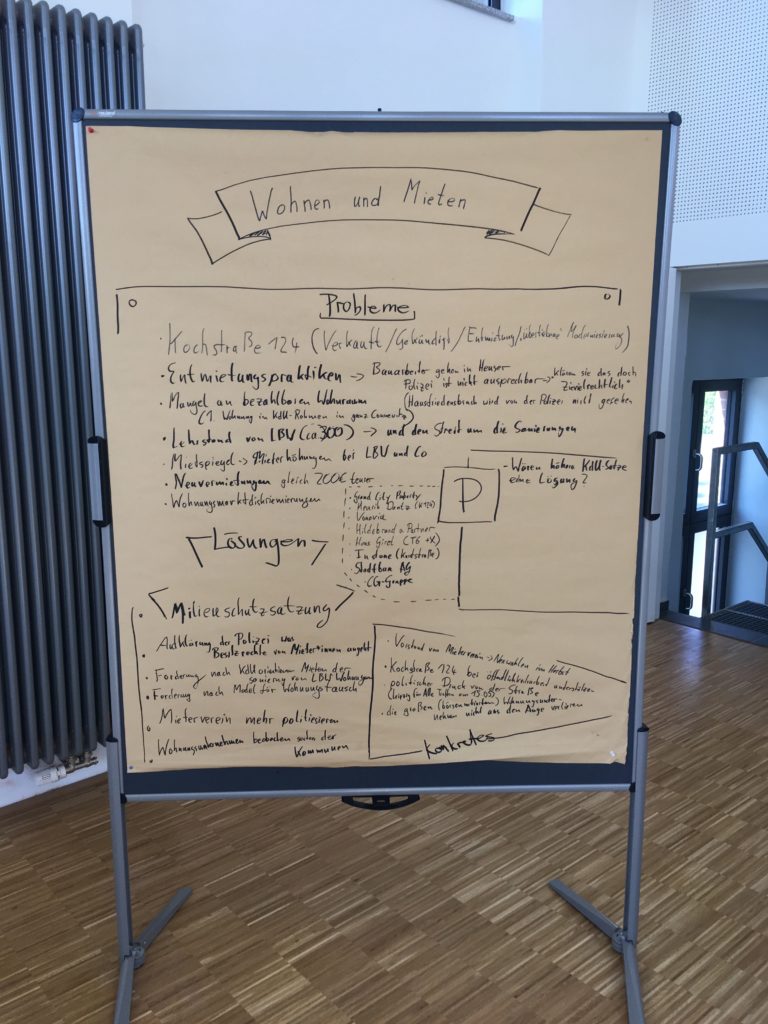 Wohnen und Mieten
Probleme
· Kochstraße 124 (Verkauft / Gekündigt / Entmietung / Modernisierung)
· Entmietungspraktiken -> Bauarbeiter gehen in Heuser
Polizei ist nicht ausprechbar -> "klären sie das doch
Zievielrechtlich"
(Hausfriedensbruch wird von der Polizei nicht gesehen
· Mangel an bezahlbaren Wohnraum
(1 Wohnung in KdU-Rahmen in ganz Connewitz)
· Lehrstand von LBV (ca. 300) -> und den Streit um die Sanierungen
· Mietspiegel -> Mieterhöhungen bei LBV und Co
· Neuvermietungen gleich 200€ teuer
· Wohnungsmarktdiskriemierungen
· Grand City Poberty
· Henrik (K124)
· Vonovia
· Hildebrand u Partner
· Hans Girel (T6 +X)
· Indane (Kochstraße)
· Stadtbau AG
· CG-Gruppe
P
- Wären höhere KdU-Sätze
eine Lösung?
Lösungen
Milienschutzsatzung
· Aufklärung der Polizei was
Besitzrechte von Mieter*innen angeht
· Forderung nach KdU Mieten der
von LBV Wohnungen
· Forderung nach Model für Wohnungstausch
· Mieterverein mehr politisieren
· beobachten seiten der
Kommunen
· Vorstand von Mieterverein -> Neuwahlen im Herbst
· Kochstraße 124 bei öffendlichkeitsarbeit unterstützen
politischer Druck von der Straße
(Leipzig für Alle Treffen am 15.05)
· die großen (börsennotierten) Wohnungsunter-
nehmen nicht aus den Auge verlieren
Konkretes